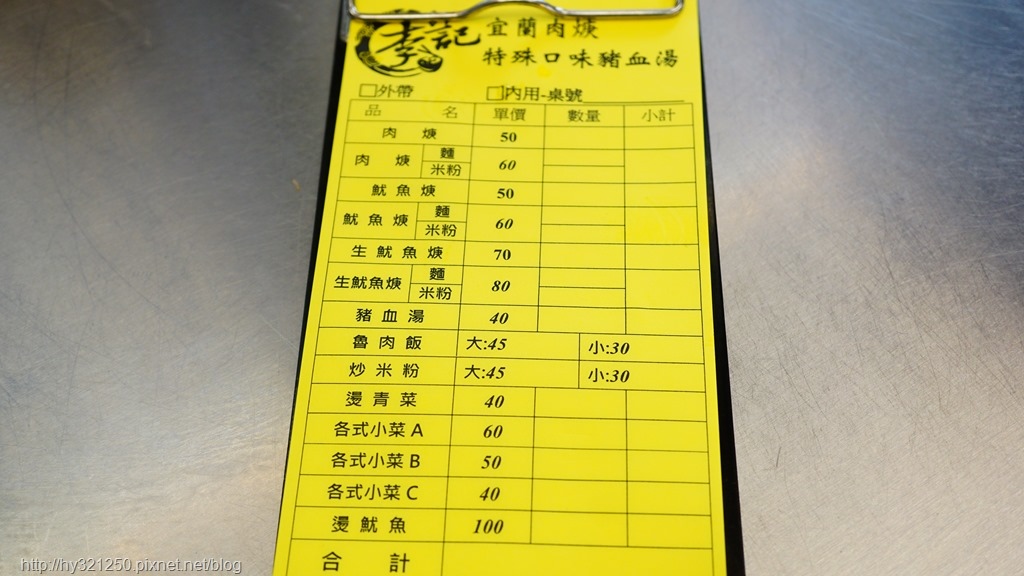 李記 宜蘭肉焿
特殊口味豬血湯
□外帶 □內用-桌號
品名 單價 數量 小計
肉焿 50
肉焿 麵 米粉 60
魷魚焿 50
魷魚焿 麵 米粉 60
生魷魚焿 70
生魷魚焿 麵 米粉 80
豬血湯 40
魯肉飯 大:45 小:30
炒米粉 大:45 小:30
燙青菜 40
各式小菜A 60
各式小菜B 50
各式小菜C 40
燙魷魚 100
合計
http://hy321250.pixnet.net/blog